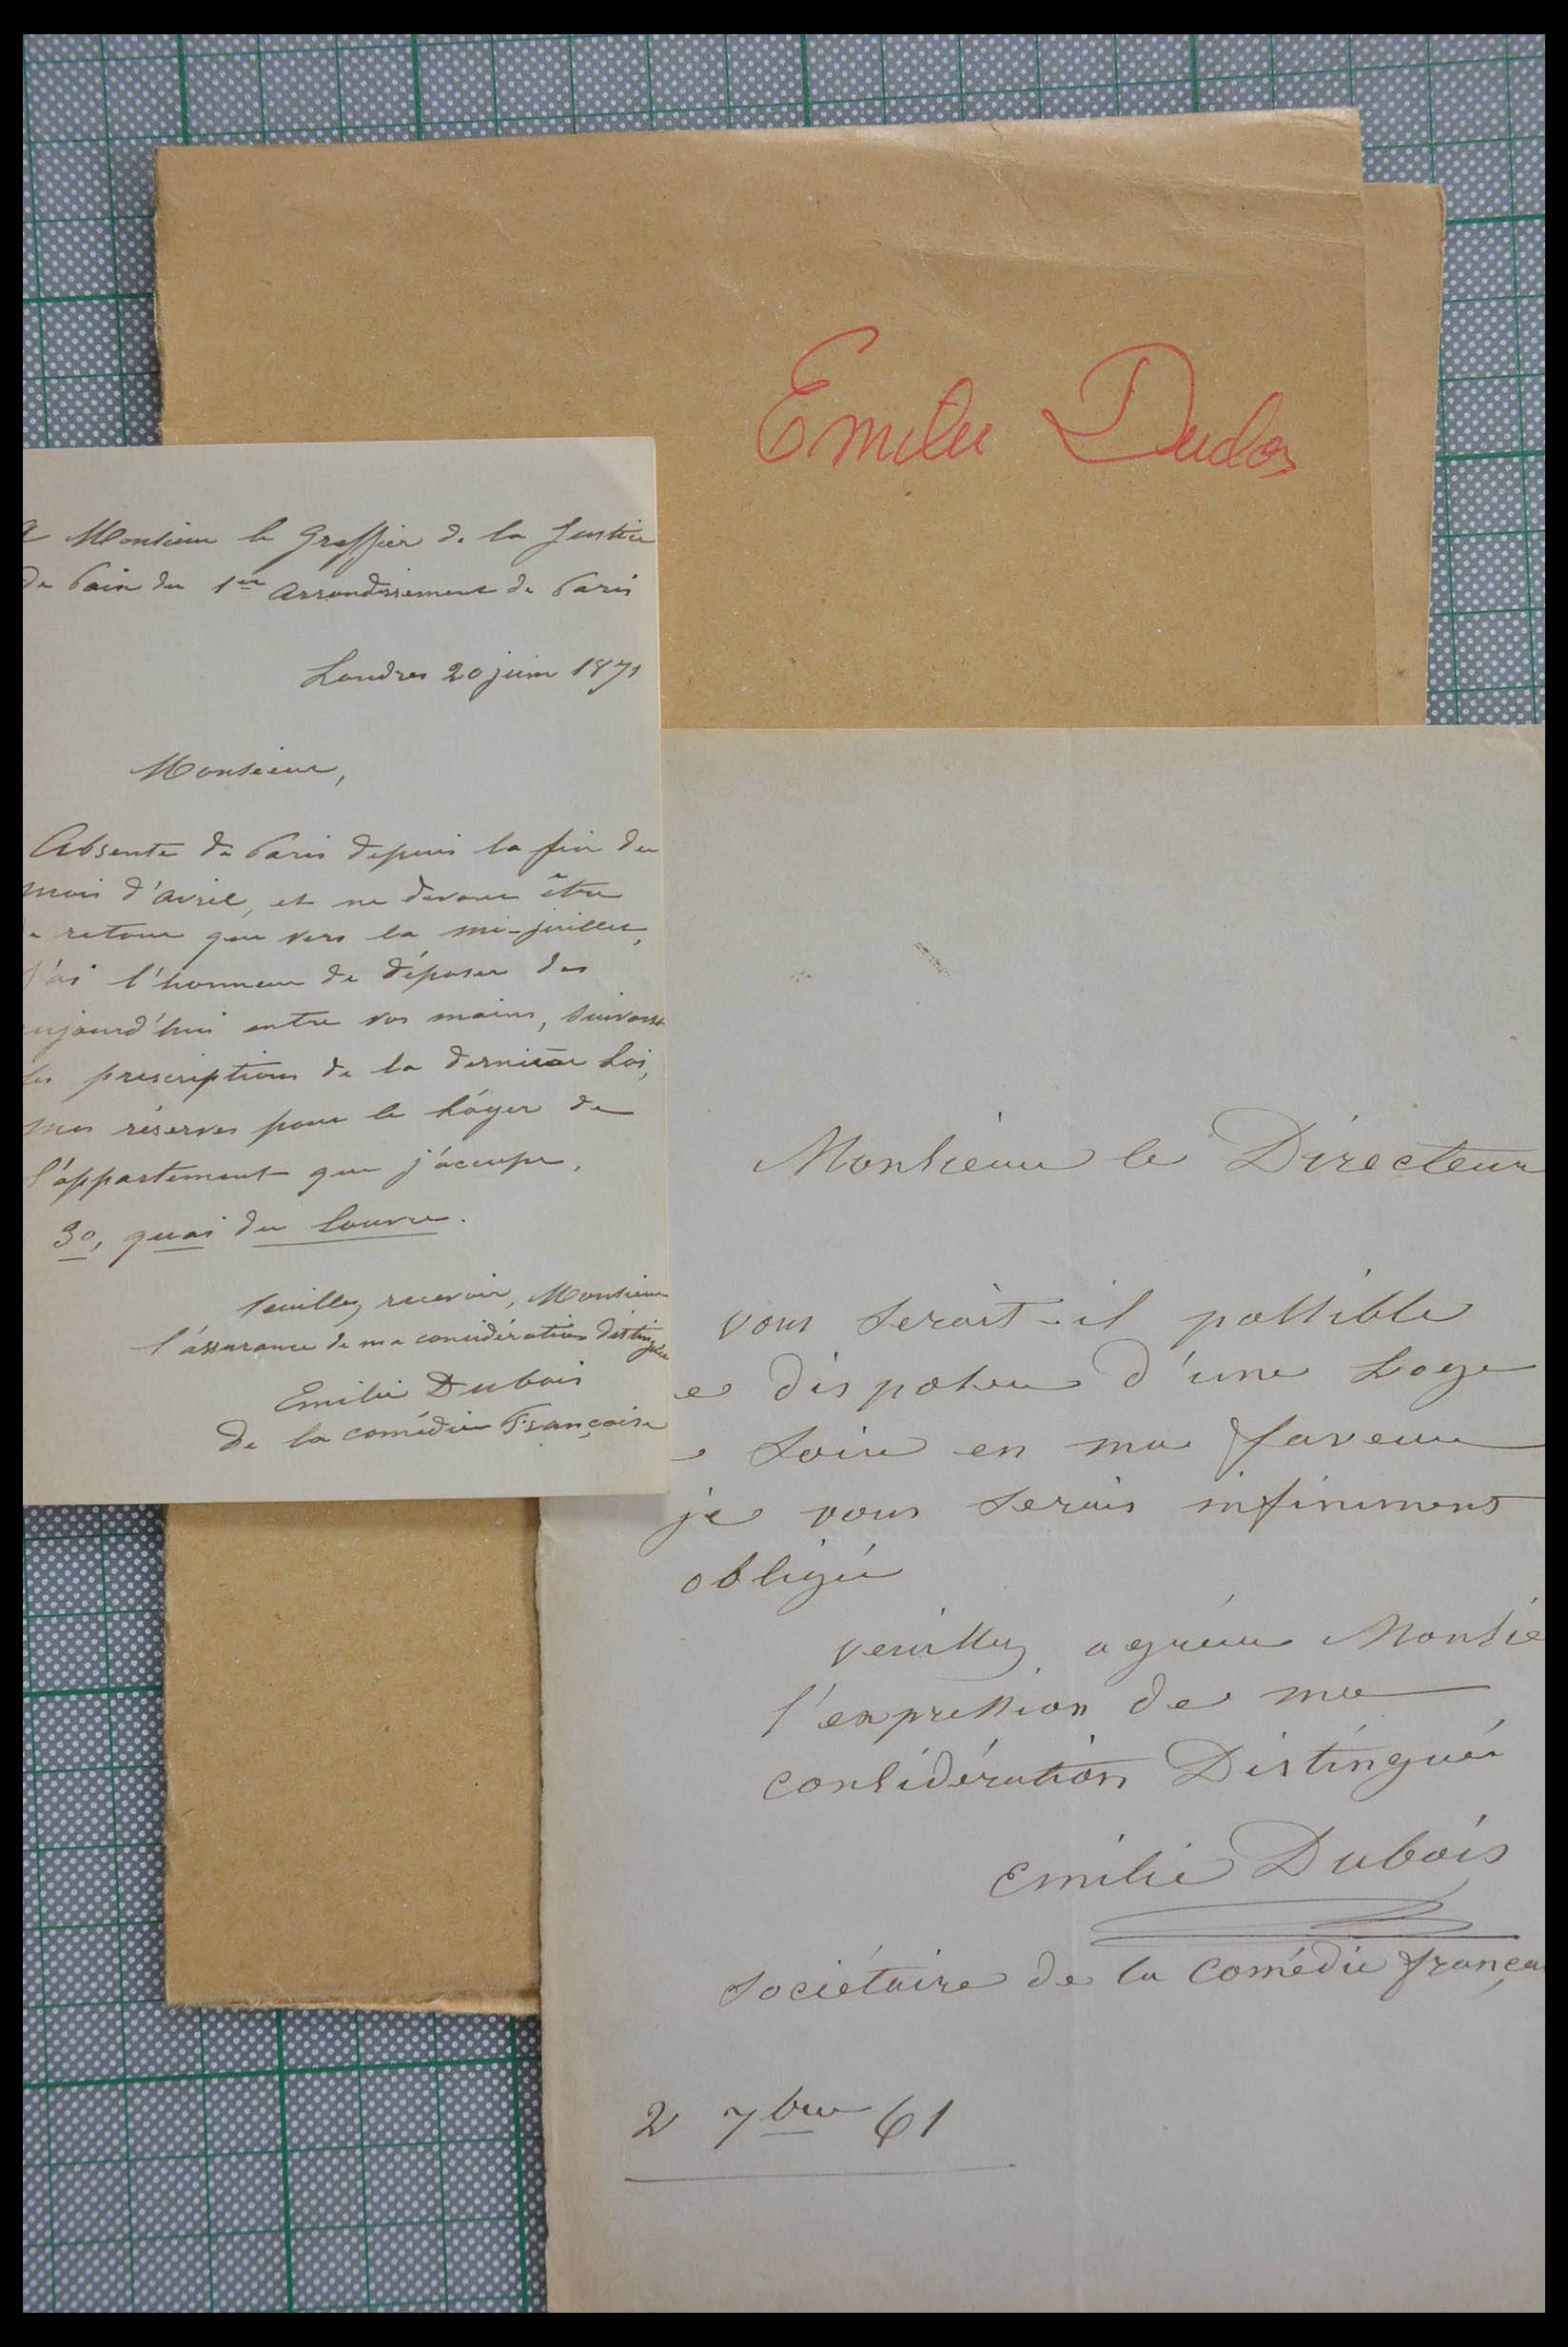 Emilie Dubois
A Monsieur le Greffier de la Justice
de Paix du 1er arrondissement de Paris
Londres 20 juin 1871
Monsieur,
Absente de Paris depuis la fin du
mois d'avril, et ne devant être
de retour que vers la mi-juillet,
J'ai l'honneur de déposer dès
aujourd'hui entre vos mains, suivant
les prescriptions de la dernière Loi,
mes réserves pour le Loyer de
l'appartement que j'occupe,
30, quai du Louvre.
Veuillez recevoir, Monsieur
l'assurance de ma considération distinguée
Emilie Dubois
De la comédie Française
Monsieur le Directeur
vous serait-il possible
de disposer d'une Loge
ce soir en ma faveur
je vous serais infiniment
obligée
veuillez agréer Monsie
l'expression de ma
considération Distinguée
Emilie Dubois
sociétaire de la comédie françai
2 7bre 61